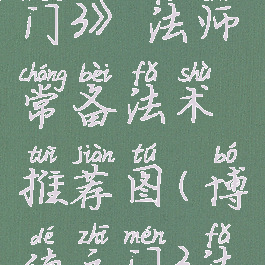 门3》 法师
cháng bèi fǎ shù
常备法术
tuī jiàn tú bó
推荐图(博
dé zhī mén fǎ
德之门3法